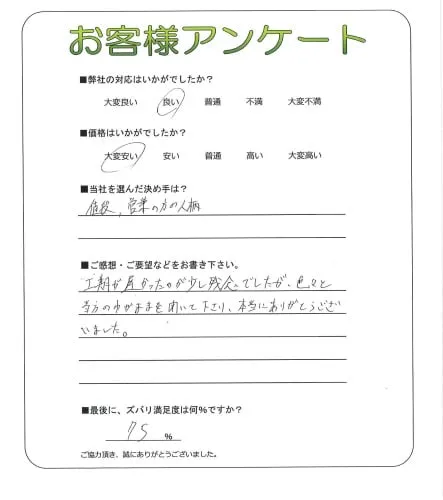 お客様アンケート
■弊社の対応はいかがでしたか?
大変良い 良い 普通 不満 大変不満
■価格はいかがでしたか?
大変安い 安い 普通 高い 大変高い
■当社を選んだ決め手は?
値段、営業の方の人柄
■ご感想・ご要望などをお書き下さい。
工期が長かったのが少し残念でしたが、色々と
当方のわがままを聞いて下さり、本当にありがとうござ
いました。
■最後に、ズバリ満足度は何%ですか?
75 %
ご協力頂き、誠にありがとうございました。